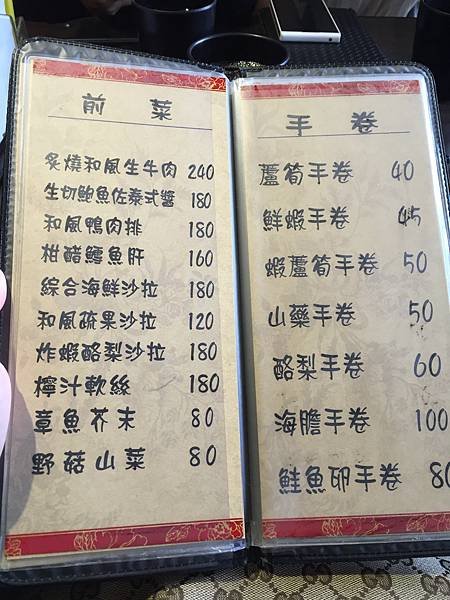 前菜
炙燒和風生牛肉 240
生切鮑魚佐泰式醬 180
和風鴨肉排 180
柑醋鱈魚肝 160
綜合海鮮沙拉 180
和風疏果沙拉 120
炸蝦酪梨沙拉 180
檸汁軟絲 180
章魚芥末 80
野菇山菜 80
手卷
蘆筍手卷 40
鮮蝦手卷 45
蝦蘆筍手卷 50
山藥手卷 50
酪梨手卷 60
海膽手卷 100
鮭魚卵手卷 80